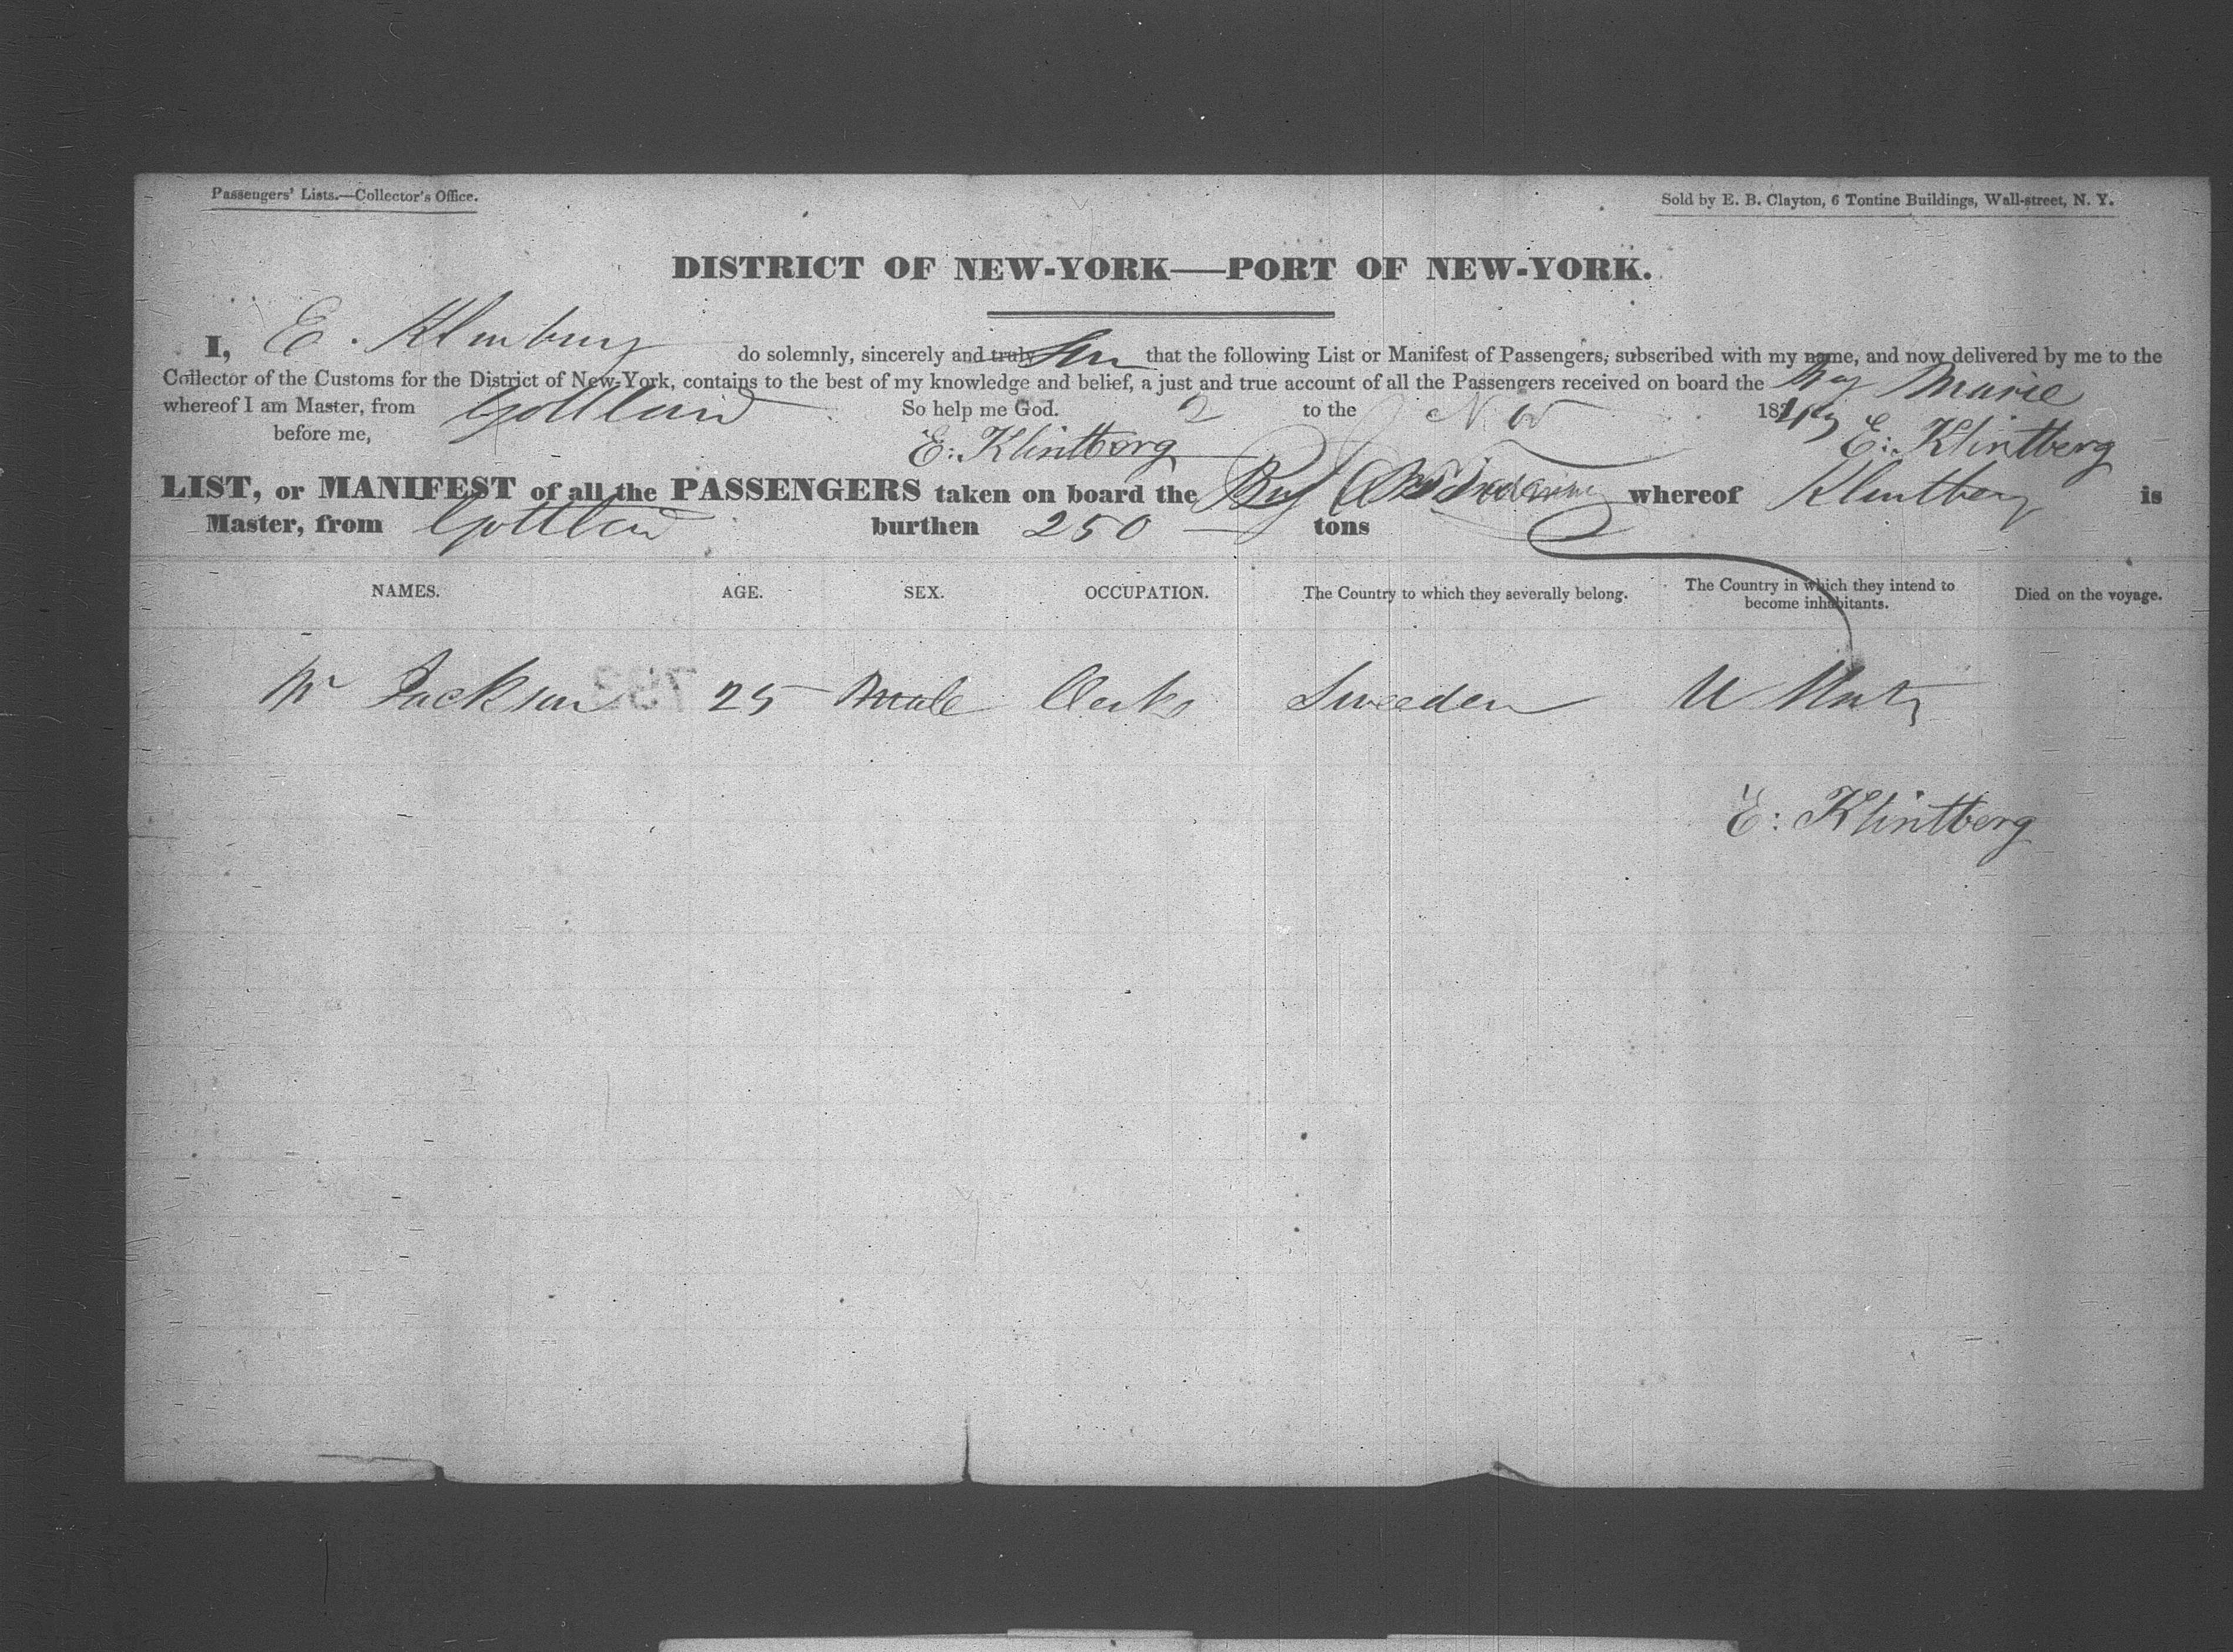 Passengers' Lists.—Collector's Office.
Sold by E. B. Clayton, 6 Tontine Buildings, Wall-street, N. Y.
DISTRICT OF NEW-YORK—PORT OF NEW-YORK.
I, E. do solemnly, sincerely and truly that the following List or Manifest of Passengers, subscribed with my name, and now delivered by me to the
Collector of the Customs for the District of New-York, contains to the best of my knowledge and belief, a just and true account of all the Passengers received on board the Marie
whereof I am Master, from Gottland So help me God. 2 to the Nov 18
before me, E: Klintberg E: Klintberg
LIST, or MANIFEST of all the PASSENGERS taken on board the Brig whereof Klintberg is
Master, from Gottland burthen 250 tons
NAMES. AGE. SEX. OCCUPATION. The Country to which they severally belong. The Country in which they intend to become inhabitants. Died on the voyage.
Mr Jackson 25 Male Clerk Sweeden U States
E: Klintberg